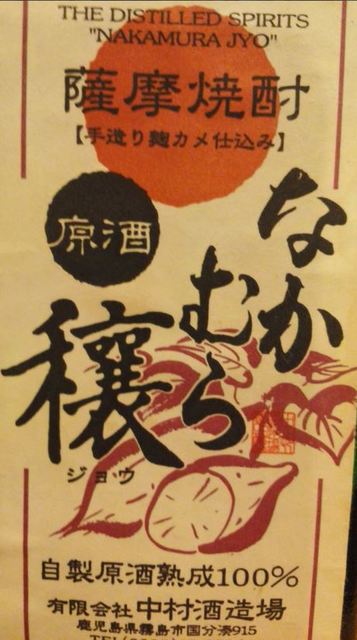 THE DISTILLED SPIRITS
"NAKAMURA JYO"
薩摩焼酎
【手造り麹カメ仕込み】
原酒
なか
むら
穣
ジョウ
自製原酒熟成100%
有限会社中村酒造場
鹿児島県霧島市国分湊915